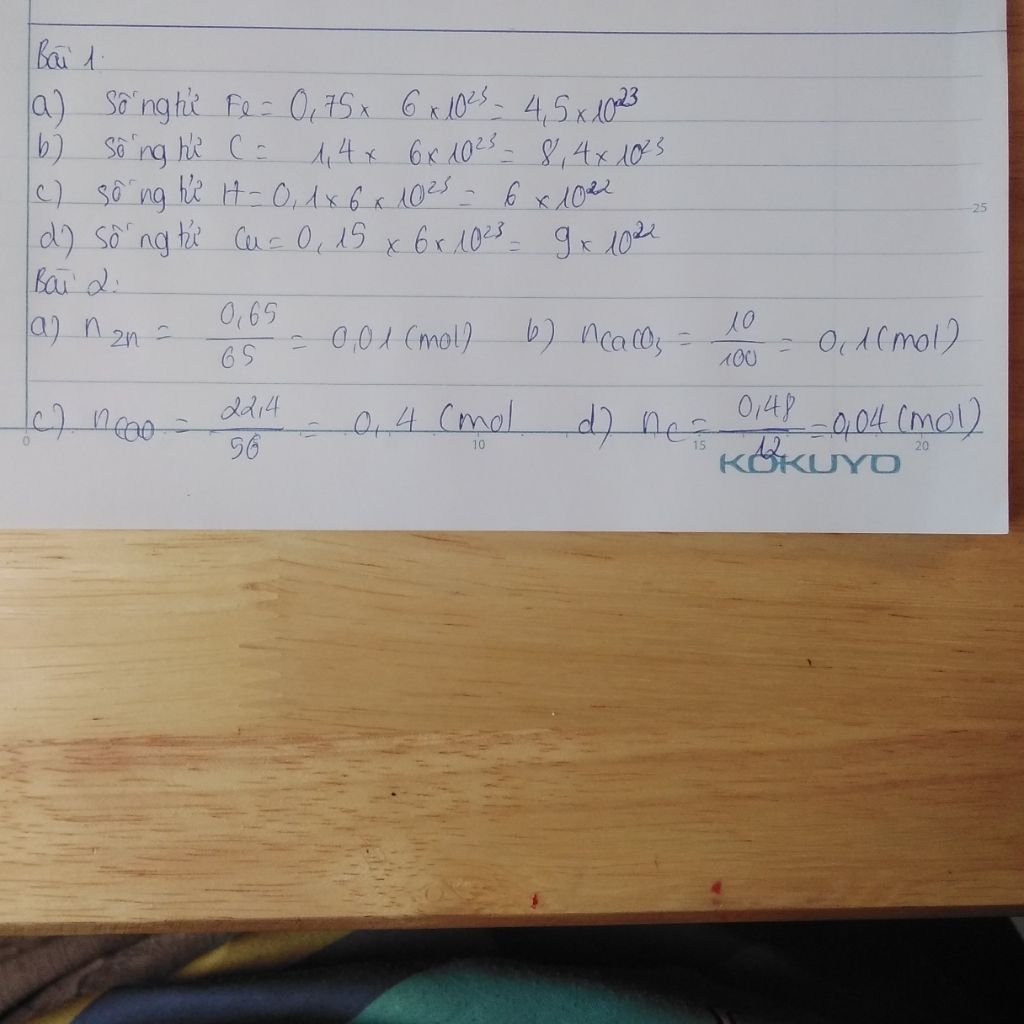 Bài 1:
a) Số ng tử Fe = 0,75 x 6 x 10²³ = 4,5 x 10²³
b) Số ng tử C = 1,4 x 6 x 10²³ = 8,4 x 10²³
c) Số ng tử H = 0,1 x 6 x 10²³ = 6 x 10²²
25
d) Số ng tử Cu = 0,15 x 6 x 10²³ = 9 x 10²²
Bài 2:
a) n Zn = 0,65/65 = 0,01 (mol) b) n CaCO₃ = 10/100 = 0,1 (mol)
c) n CaO = 22,4/56 = 0,4 (mol d) n C = 0,48/12 = 0,04 (mol)
0 10 15 20
KOKUYO